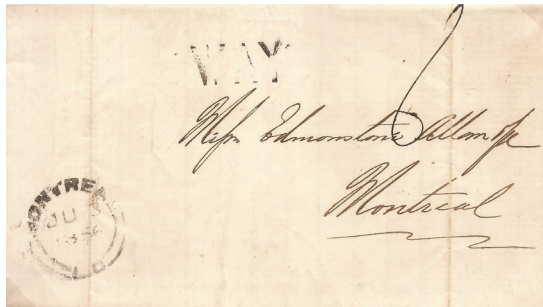 WAY
6
Messrs Edmonstone Allan & Co
Montreal
MONTREAL
JU
1856
L.C.